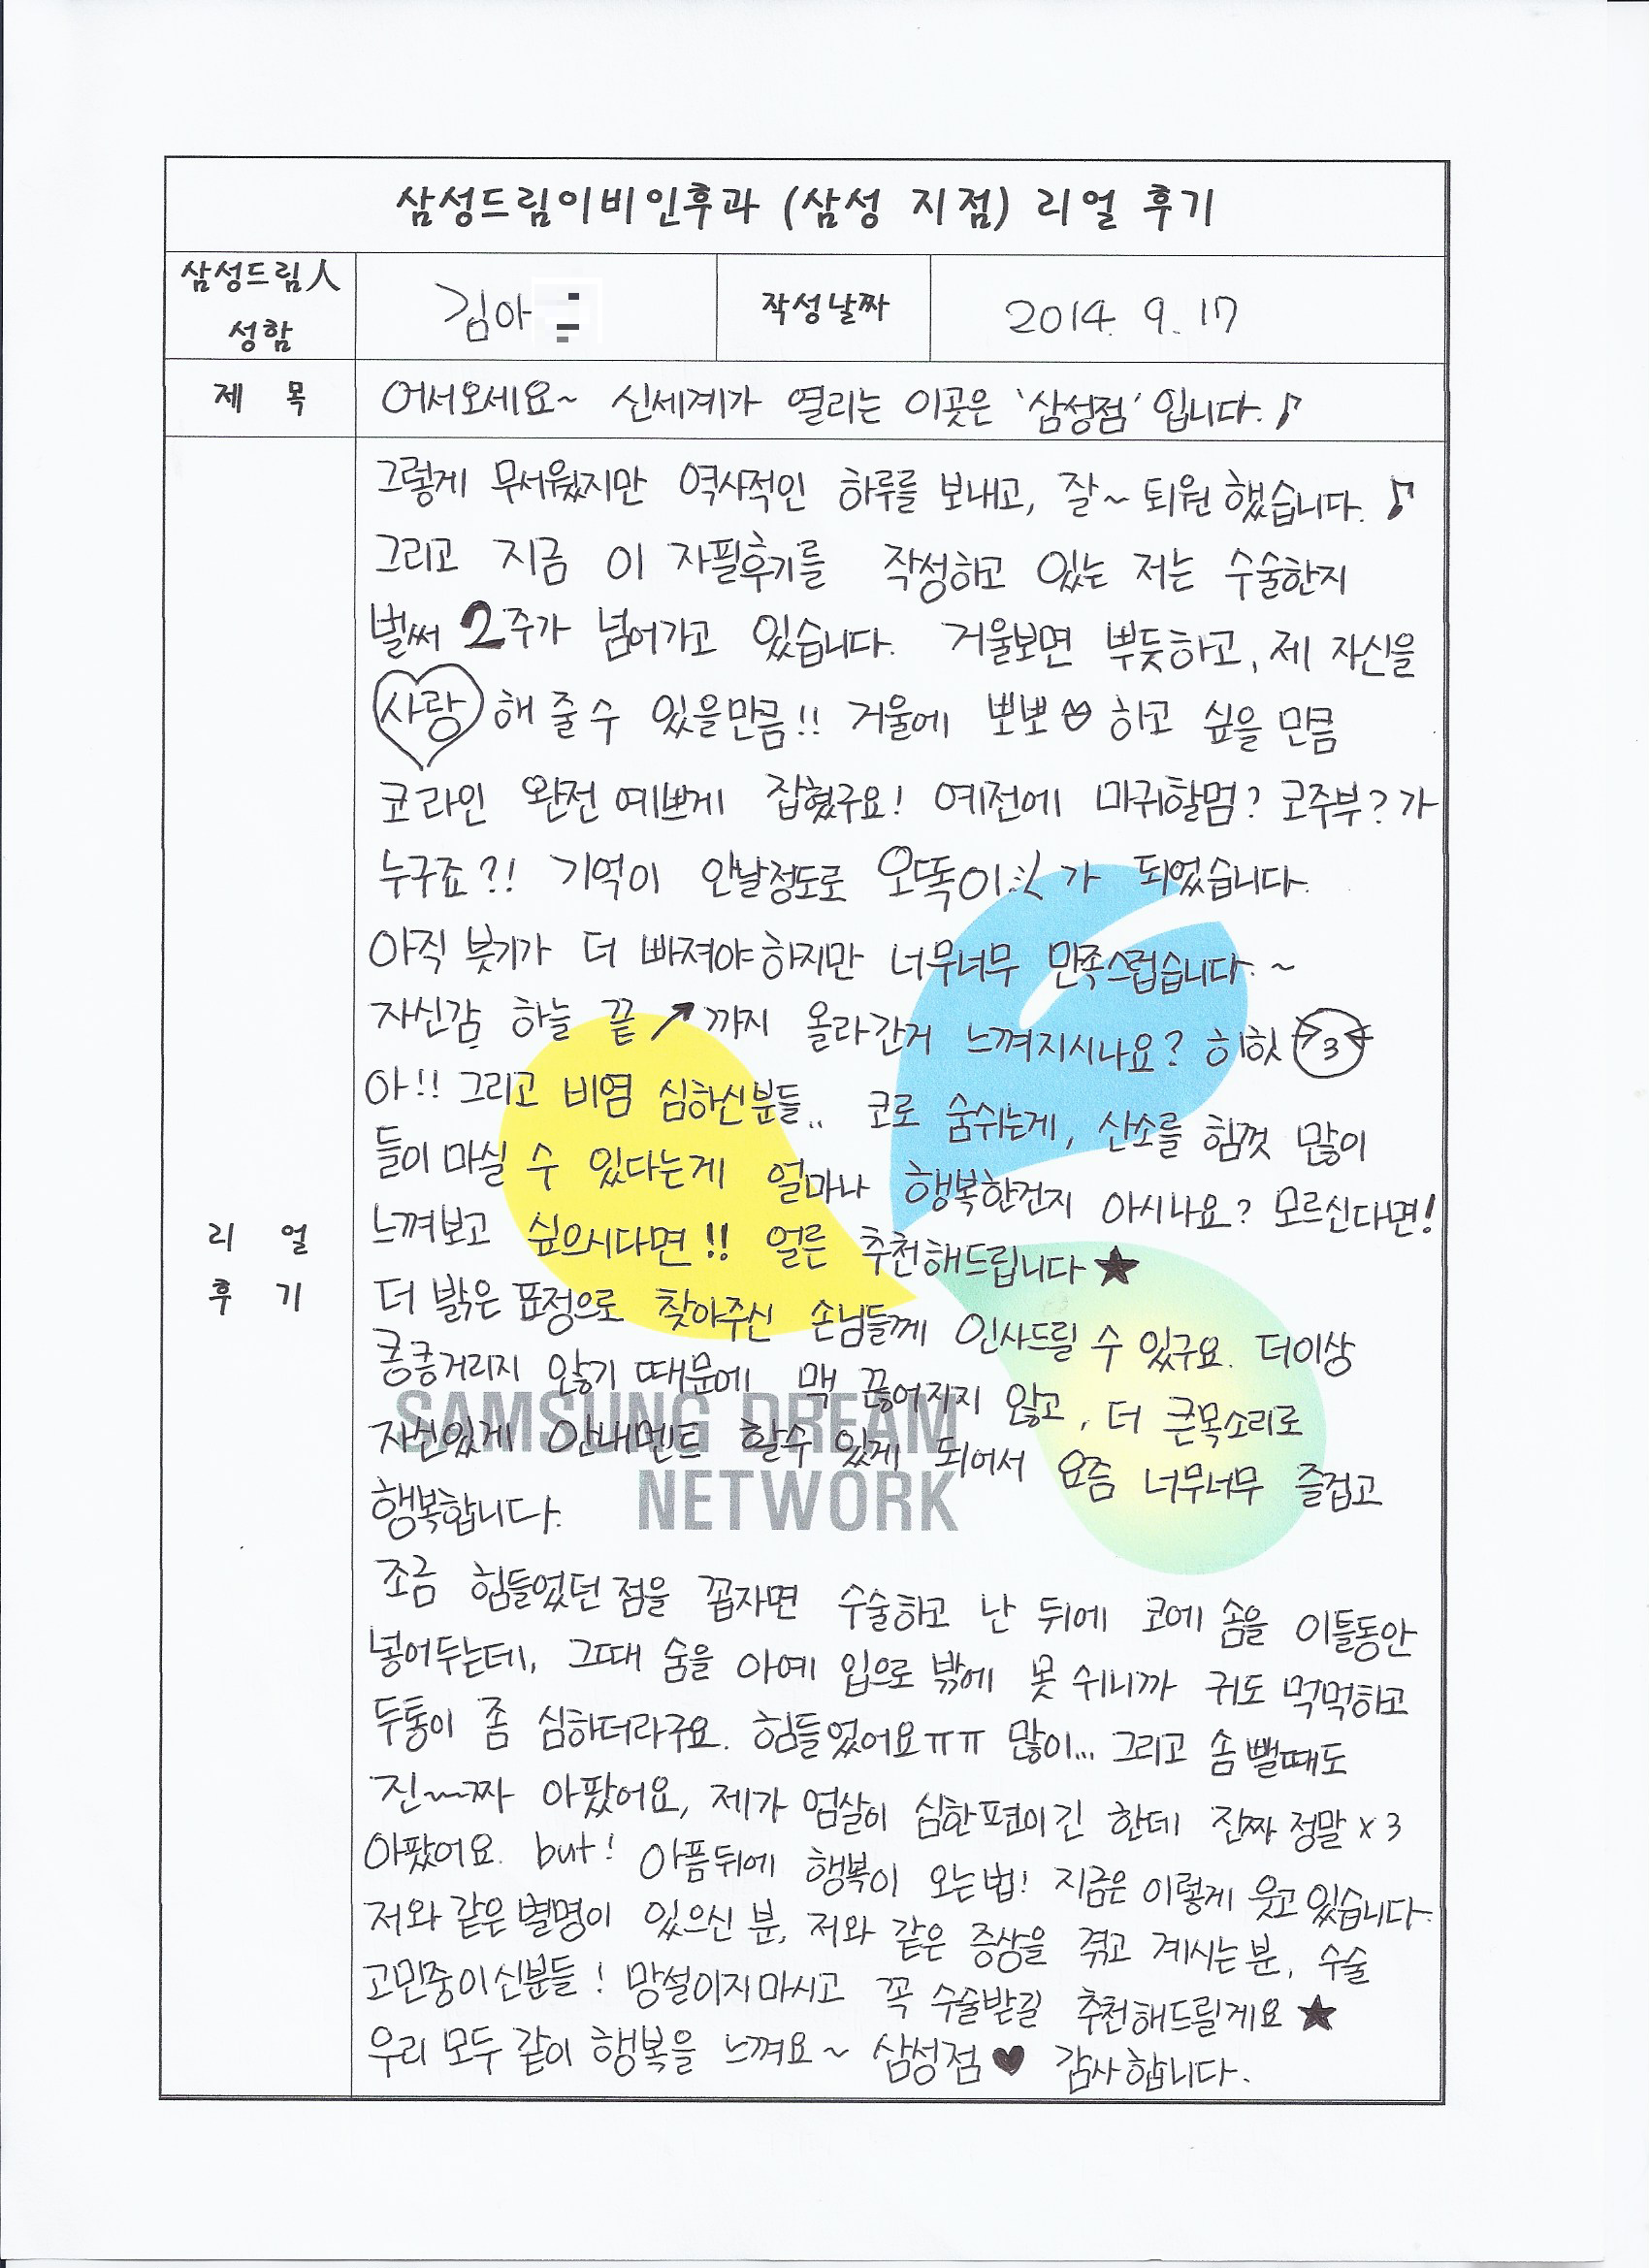 삼성드림이비인후과 (삼성 지점) 리얼 후기
삼성드림人
성함
김아
작성날짜
2014. 9. 17
제 목
어서오세요~ 신세계가 열리는 이곳은 '삼성점' 입니다.♪
리 얼
후 기
그렇게 무서웠지만 역사적인 하루를 보내고, 잘~ 퇴원 했습니다. ♪
그리고 지금 이 자필후기를 작성하고 있는 저는 수술한지
벌써 2주가 넘어가고 있습니다. 거울보면 뿌듯하고, 제 자신을
사랑 해 줄 수 있을만큼!! 거울에 뽀뽀 하고 싶을 만큼
코라인 완전 예쁘게 잡혔구요! 예전에 마귀할멈? 코주부? 가
누구죠?! 기억이 안날정도로 오똑이:( 가 되었습니다.
아직 붓기가 더 빠져야 하지만 너무너무 만족스럽습니다.~
자신감 하늘 끝 ↗ 까지 올라간거 느껴지시나요? 히힛 >3<
아!! 그리고 비염 심하신분들.. 코로 숨쉬는게, 산소를 힘껏 많이
들이 마실 수 있다는게 얼마나 행복한건지 아시나요? 모르신다면!
느껴보고 싶으시다면!! 얼른 추천해드립니다 ★
더 밝은 표정으로 찾아주신 손님들께 인사드릴 수 있구요. 더이상
킁킁거리지 않기 때문에 맥 끊어지지 않고, 더 큰목소리로
자신있게 안내멘트 할수 있게 되어서 요즘 너무너무 즐겁고
행복합니다.
조금 힘들었던 점을 꼽자면 수술하고 난 뒤에 코에 솜을 이틀동안
넣어두는데, 그때 숨을 아예 입으로 밖에 못 쉬니까 귀도 먹먹하고
두통이 좀 심하더라구요. 힘들었어요ㅠㅠ 많이... 그리고 솜 뺄때도
진~~짜 아팠어요, 제가 엄살이 심한편이긴 한데 진짜 정말 x 3
아팠어요. but! 아픔뒤에 행복이 오는법! 지금은 이렇게 웃고 있습니다.
저와 같은 별명이 있으신 분, 저와 같은 증상을 겪고 계시는 분, 수술
고민중이신분들! 망설이지마시고 꼭 수술받길 추천해드릴게요 ★
우리 모두 같이 행복을 느껴요~ 삼성점 ♥ 감사합니다.
SAMSUNG DREAM
NETWORK